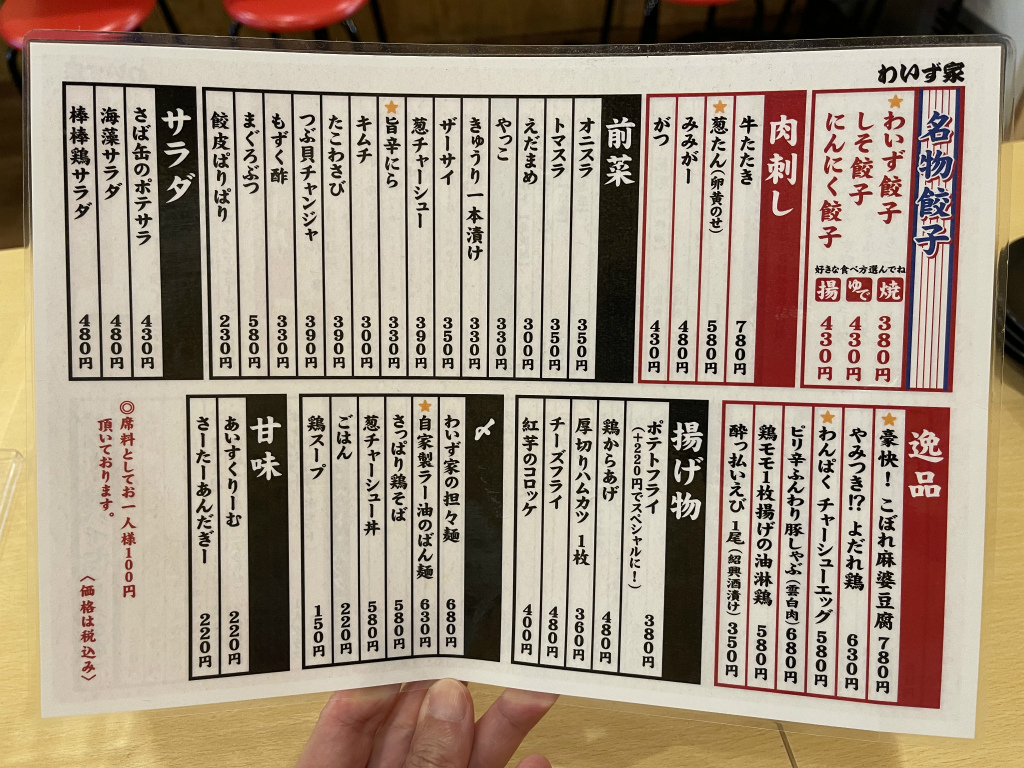 わいず家
名物餃子
★わいず餃子 380円
しそ餃子 430円
にんにく餃子 430円
好きな食べ方選んでね
焼 ゆで 揚
肉刺し
牛たたき 780円
★葱たん(卵黄のせ) 580円
みみがー 480円
がつ 430円
前菜
オニスラ 350円
トマスラ 350円
えだまめ 300円
やっこ 330円
きゅうり一本漬け 330円
ザーサイ 350円
葱チャーシュー 390円
★旨辛にら 330円
キムチ 300円
たこわさび 390円
つぶ貝チャンジャ 390円
もずく酢 330円
まぐろぶつ 580円
餃皮ぱりぱり 230円
サラダ
さば缶のポテサラ 430円
海藻サラダ 480円
棒棒鶏サラダ 480円
逸品
★豪快!こぼれ麻婆豆腐 780円
やみつき!?よだれ鶏 630円
★わんぱくチャーシューエッグ 580円
ピリ辛ふんわり豚しゃぶ(雲白肉) 680円
鶏モモ1枚揚げの油淋鶏 580円
酔っ払いえび 1尾(紹興酒漬け) 350円
揚げ物
ポテトフライ 380円
(+220円でスペシャルに!)
鶏からあげ 480円
厚切りハムカツ 1枚 360円
チーズフライ 480円
紅芋のコロッケ 400円
〆
わいず家の担々麺 680円
★自家製ラー油のばん麺 630円
さっぱり鶏そば 580円
葱チャーシュー丼 580円
ごはん 220円
鶏スープ 150円
甘味
あいすくりーむ 220円
さーたーあんだぎー 220円
◎席料としてお一人様100円
頂いております。
〈価格は税込み〉